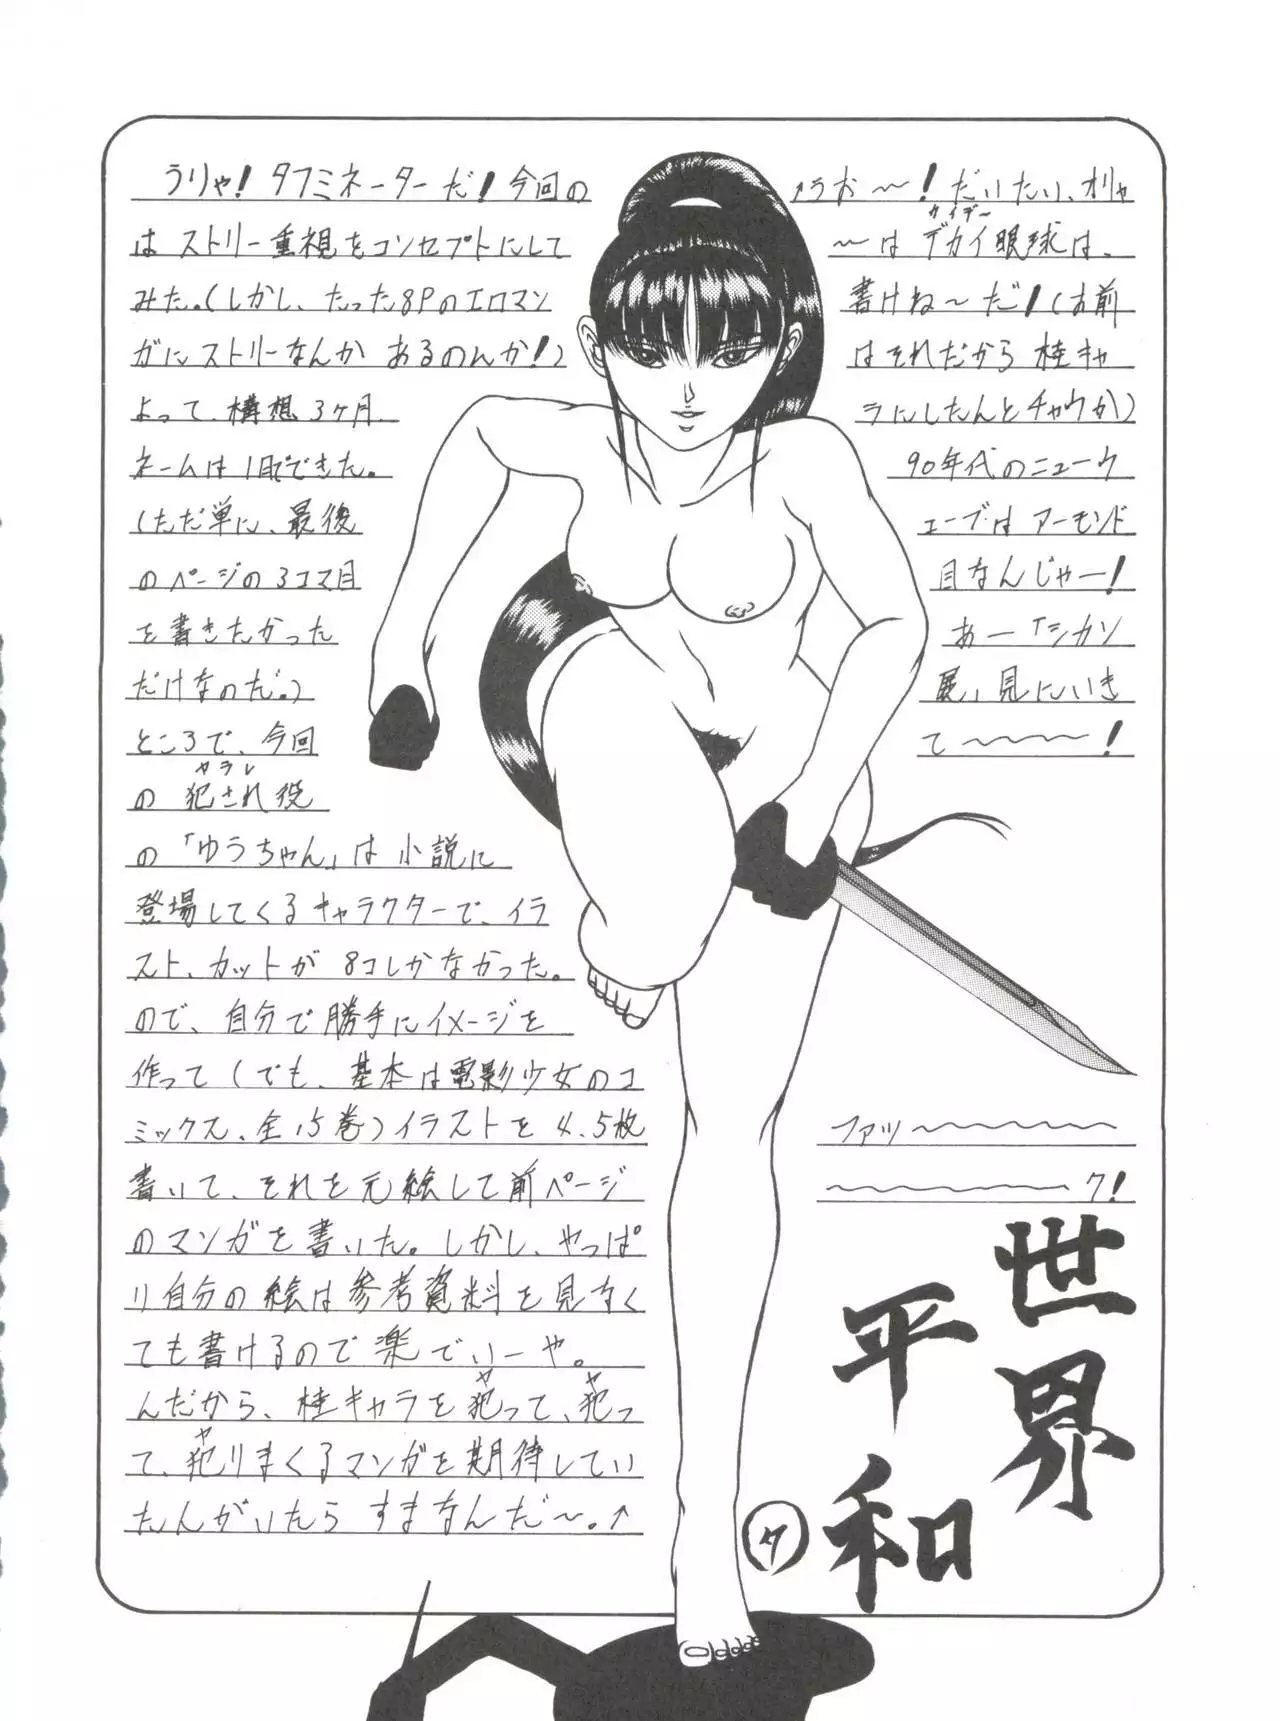 うりゃ!タフミネーターだ!今回の
はストリー重視をコンセプトにして
みた。(しかし、たった8Pのエロマン
ガにストリーなんかあるのんか!)
よって、構想3ヶ月、
ネームは1日でできた。
(ただ単に、最後
のページの3コマ目
を書きたかった
だけなのだ。)
ところで、今回
ヤラレ
の犯され役
の「ゆうちゃん」は小説に
登場してくるキャラクターで、イラ
スト、カットが8コしかなかった。
ので、自分で勝手にイメージを
作って(でも、基本は電影少女のコ
ミックス、全15巻)イラストを4、5枚
書いて、それを元絵して前ページ
のマンガを書いた。しかし、やっぱ
り自分の絵は参考資料を見なく
ても書けるので楽でいーや。
んだから、桂キャラを犯って、犯っ
ヤ ヤ
て、犯りまくるマンガを期待してい
ヤ
たんがいたらすまなんだ〜。↑
↑うお〜〜!だいたい、オリャ
〜〜はデカイ眼球は、
書けね〜だ!(お前
はそれだから桂キャ
ラにしたんとチャウか)
90年代のニューウ
ェーブはアーモンド
目なんじゃー!
あー「シカソ
展」見にいき
て〜〜〜〜!
ファッ〜〜〜〜〜〜
〜〜〜〜〜〜〜ク!
世界
平和
タ